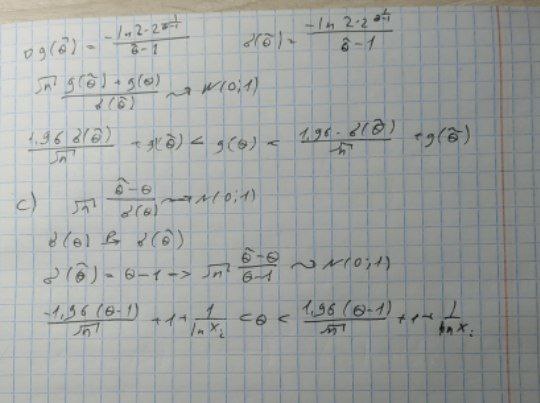 g(θ̂) = (-ln2·2^(1/(θ̂-1)))/(θ̂-1)   δ(θ̂) = (-ln2·2^(1/(θ̂-1)))/(θ̂-1)
√n (g(θ̂)+g(θ))/δ(θ̂) ~> N(0;1)
1,96 δ(θ̂)/√n + g(θ̂) < g(θ) < 1,96-δ(θ̂)/√n + g(θ̂)
c) √n (θ̂-θ)/δ(θ) ~> N(0;1)
δ(θ) δ(θ̂)
δ(θ̂) = θ-1 -> √n (θ̂-θ)/(θ-1) ~> N(0;1)
-1,96(θ-1)/√n + 1 + 1/ln Xi < θ < 1,96(θ-1)/√n + 1 + 1/ln Xi